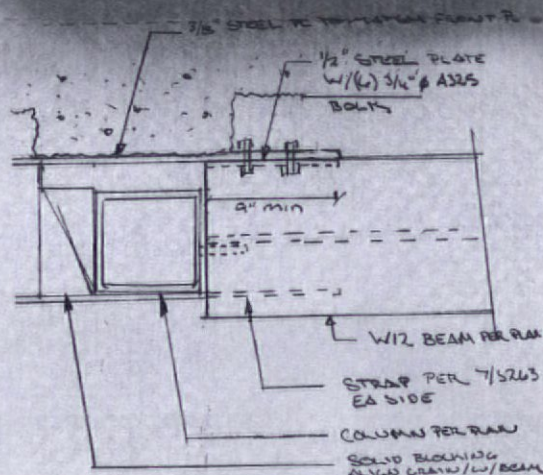 3/8" STEEL PL TO MATCH FRONT PL
1/2" STEEL PLATE
W/(6) 3/4" ø A325
BOLTS
9" MIN
W12 BEAM PER PLAN
STRAP PER 7/S263
EA SIDE
COLUMN PER PLAN
SOLID BLOCKING
ALIGN GRAIN W/ BEAM